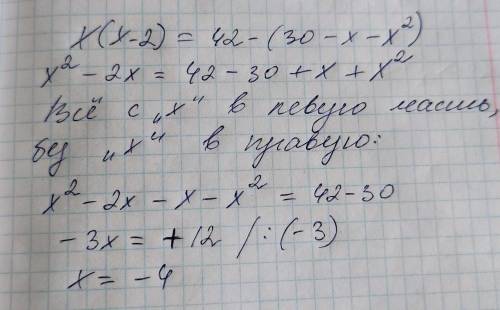 x(x-2) = 42-(30-x-x²)
x²-2x = 42-30+x+x²
Всё с „x" в левую часть,
без „x" в правую:
x²-2x-x-x² = 42-30
-3x = +12 /:(-3)
x = -4